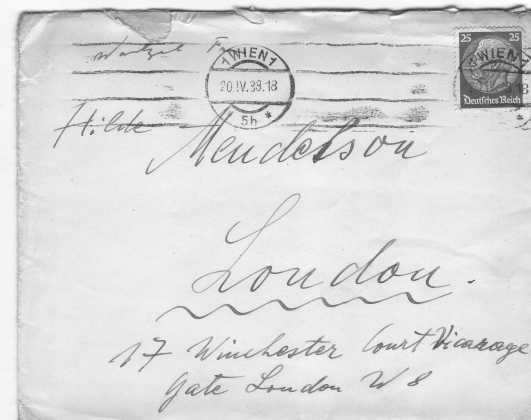 1 WIEN 1
20.IV.38.18
5h *
25 25
Deutsches Reich
WIEN
Hilde
Mendelson
London.
17 Winchester Court Vicarage
gate London W 8